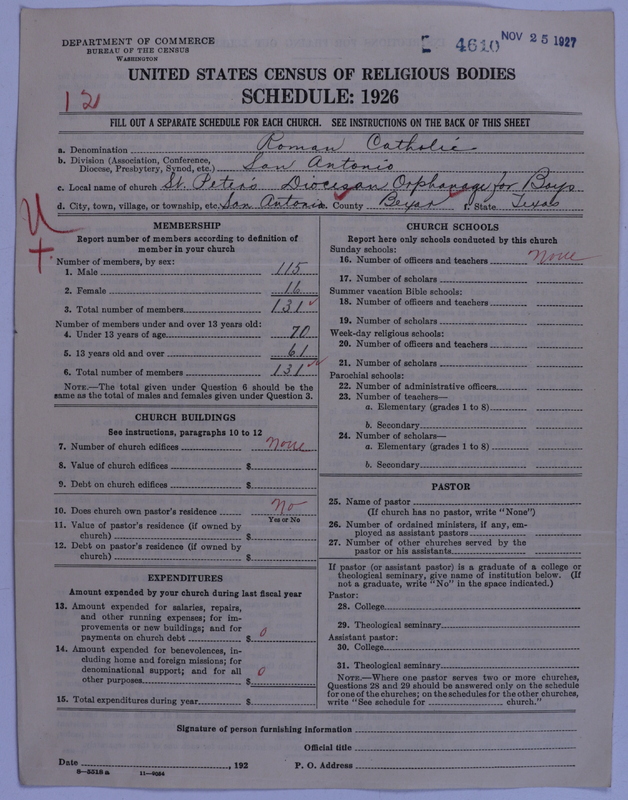 DEPARTMENT OF COMMERCE
BUREAU OF THE CENSUS
WASHINGTON
4610 NOV 25 1927
UNITED STATES CENSUS OF RELIGIOUS BODIES
SCHEDULE: 1926
12
FILL OUT A SEPARATE SCHEDULE FOR EACH CHURCH. SEE INSTRUCTIONS ON THE BACK OF THIS SHEET
a. Denomination Roman Catholic
b. Division (Association, Conference, Diocese, Presbytery, Synod, etc.) San Antonio
c. Local name of church St. Peter's Diocesan Orphanage for Boys
d. City, town, village, or township, etc. San Antonio e. County Bexar f. State Texas
U
+
MEMBERSHIP
Report number of members according to definition of
member in your church
Number of members, by sex:
1. Male 115
2. Female 16
3. Total number of members 131
Number of members under and over 13 years old:
4. Under 13 years of age 70
5. 13 years old and over 61
6. Total number of members 131
NOTE.—The total given under Question 6 should be
same as the total of males and females given under Question 3.
CHURCH BUILDINGS
See instructions, paragraphs 10 to 12
7. Number of church edifices None
8. Value of church edifices $
9. Debt on church edifices $
10. Does church own pastor's residence No
Yes or No
11. Value of pastor's residence (if owned by
church) $
12. Debt on pastor's residence (if owned by
church) $
EXPENDITURES
Amount expended by your church during last fiscal year
13. Amount expended for salaries, repairs,
and other running expenses; for im-
provements or new buildings; and for
payments on church debt $ 0
14. Amount expended for benevolences, in-
cluding home and foreign missions; for
denominational support; and for all
other purposes $ 0
15. Total expenditures during year $
CHURCH SCHOOLS
Report here only schools conducted by this church
Sunday schools:
16. Number of officers and teachers None
17. Number of scholars
Summer vacation Bible schools:
18. Number of officers and teachers
19. Number of scholars
Week-day religious schools:
20. Number of officers and teachers
21. Number of scholars
Parochial schools:
22. Number of administrative officers
23. Number of teachers—
a. Elementary (grades 1 to 8)
b. Secondary
24. Number of scholars—
a. Elementary (grades 1 to 8)
b. Secondary
PASTOR
25. Name of pastor
(If church has no pastor, write "None")
26. Number of ordained ministers, if any, em-
ployed as assistant pastors
27. Number of other churches served by the
pastor or his assistants
If pastor (or assistant pastor) is a graduate of a college or
theological seminary, give name of institution below. (If
not a graduate, write "No" in the space indicated.)
Pastor:
28. College
29. Theological seminary
Assistant pastor:
30. College
31. Theological seminary
NOTE.—Where one pastor serves two or more churches,
Questions 28 and 29 should be answered only on the schedule
for one of the churches; on the schedules for the other churches,
write "See schedule for church."
Signature of person furnishing information
Official title
Date , 192 P. O. Address
8—5318a 11—9054